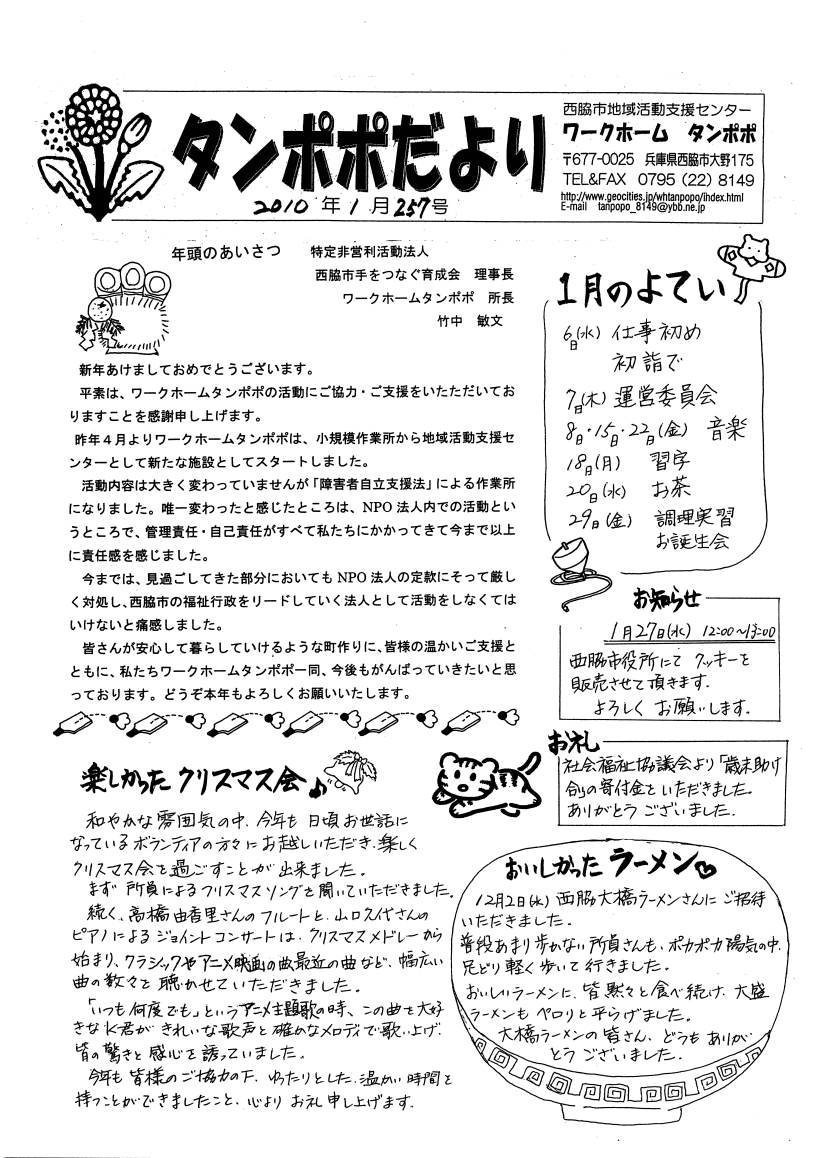 タンポポだより
2010年1月257号
西脇市地域活動支援センター
ワークホーム タンポポ
〒677-0025 兵庫県西脇市大野175
TEL&FAX 0795（22）8149
http://www.geocities.jp/whtanpopo/index.html
E-mail tanpopo_8149@ybb.ne.jp
年頭のあいさつ 特定非営利活動法人
西脇市手をつなぐ育成会 理事長
ワークホームタンポポ 所長
竹中 敏文
新年あけましておめでとうございます。
平素は、ワークホームタンポポの活動にご協力・ご支援をいたただいてお
りますことを感謝申し上げます。
昨年４月よりワークホームタンポポは、小規模作業所から地域活動支援セ
ンターとして新たな施設としてスタートしました。
活動内容は大きく変わっていませんが「障害者自立支援法」による作業所
になりました。唯一変わったと感じたところは、NPO法人内での活動とい
うところで、管理責任・自己責任がすべて私たちにかかってきて今まで以上
に責任感を感じました。
今までは、見過ごしてきた部分においてもNPO法人の定款にそって厳し
く対処し、西脇市の福祉行政をリードしていく法人として活動をしなくては
いけないと痛感しました。
皆さんが安心して暮らしていけるような町作りに、皆様の温かいご支援と
ともに、私たちワークホームタンポポ一同、今後もがんばっていきたいと思
っております。どうぞ本年もよろしくお願いいたします。
1月のよてい
6日(水) 仕事初め
初詣で
7日(木) 運営委員会
8日・15日・22日(金) 音楽
18日(月) 習字
20日(水) お茶
29日(金) 調理実習
お誕生会
お知らせ
1月27日(水) 12:00～13:00
西脇市役所にて クッキーを
販売させて頂きます.
よろしく お願いします.
お礼
社会福祉協議会より「歳末助け
合い」の寄付金をいただきました。
ありがとうございました.
楽しかった クリスマス会♪
和やかな雰囲気の中、今年も日頃お世話に
なっているボランティアの方々にお越しいただき、楽しく
クリスマス会を過ごすことが出来ました。
まず 所員によるクリスマスソングを聞いていただきました。
続く、高橋由香里さんのフルートと、山口久代さんの
ピアノによるジョイントコンサートは、クリスマスメドレーから
始まり、クラシックやアニメ映画の曲、最近の曲など、幅広い
曲の数々を聴かせていただきました。
「いつも何度でも」というアニメ主題歌の時、この曲を大好
きなK君が きれいな歌声と確かなメロディで歌い上げ、
皆の驚きと感心を誘っていました。
今年も皆様のご協力の下、ゆったりとした、温かい時間を
持つことができましたこと、心よりお礼申し上げます.
おいしかった ラーメン♡
12月2日(水) 西脇大橋ラーメンさんにご招待
いただきました。
普段あまり歩かない所員さんも、ポカポカ陽気の中、
足どり軽く歩いて行きました。
おいしいラーメンに、皆黙々と食べ続け、大盛
ラーメンもペロリと平らげました。
大橋ラーメンの皆さん、どうもありが
とうございました。